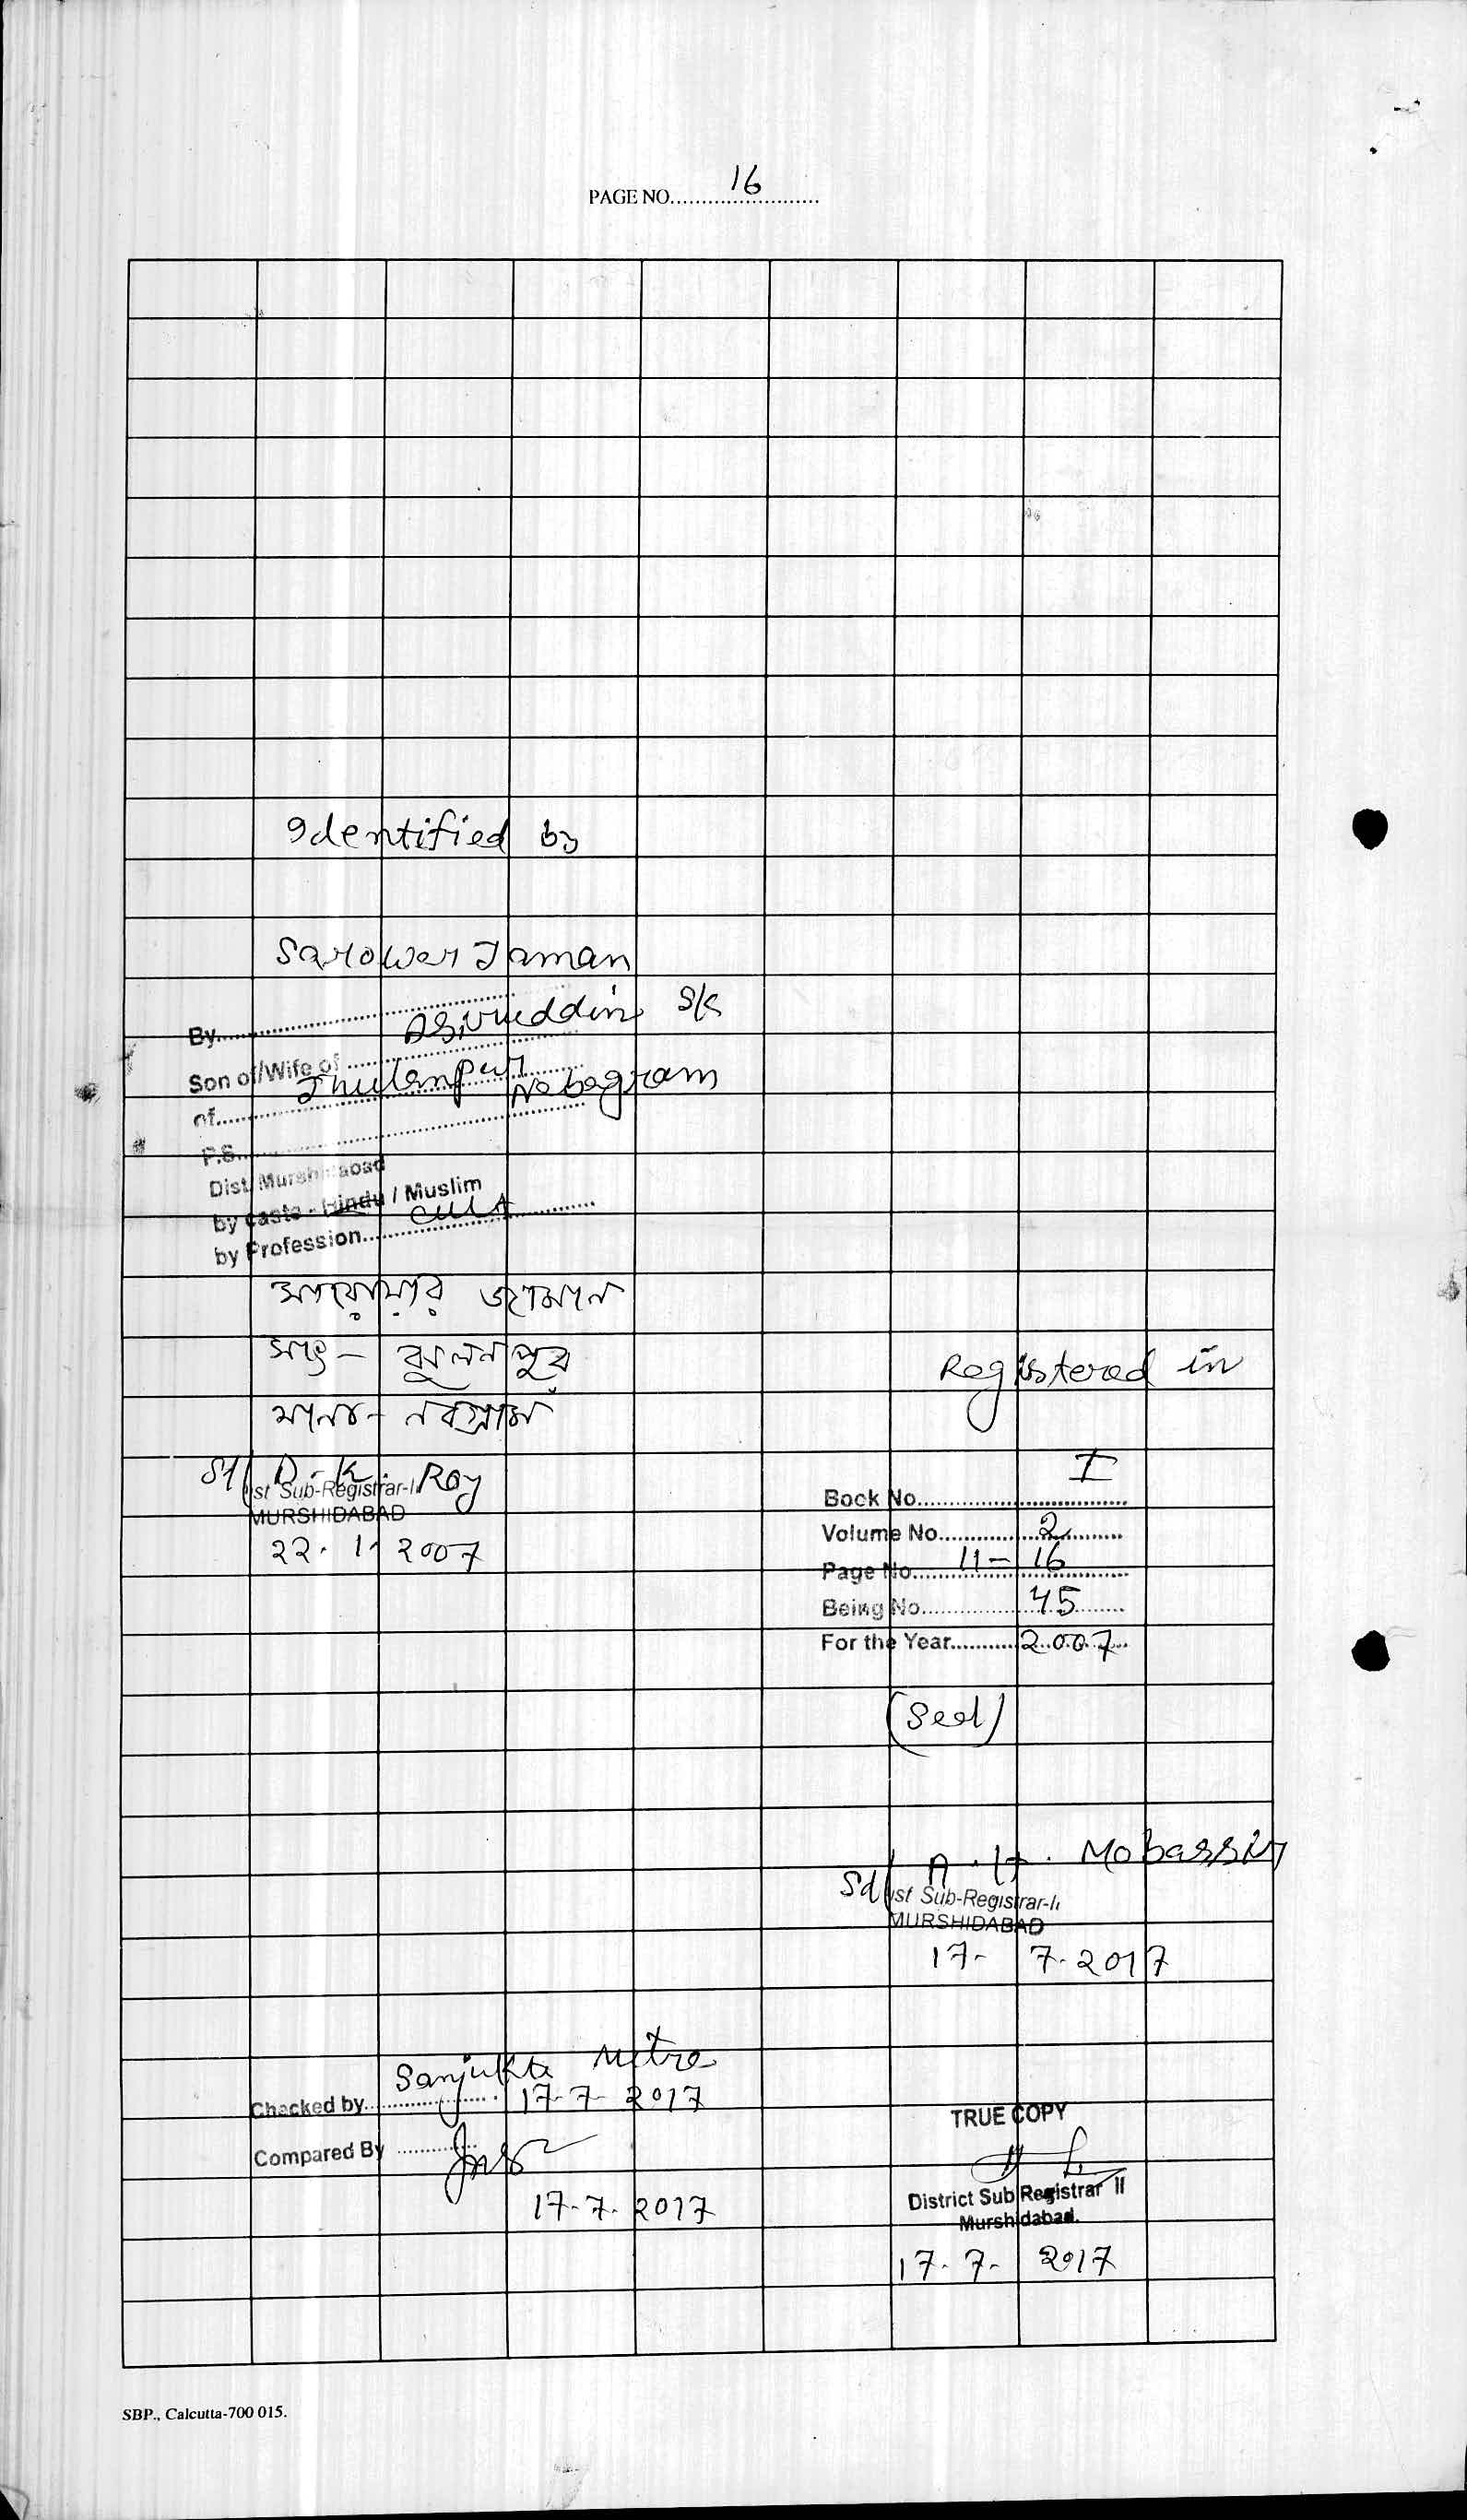 PAGE NO. 16
Identified by
Sarower Jaman
By
Asiruddin Sk
Son of/Wife of
Jhulanpur
of
Nabagram
P.S.
Dist. Murshidabad
by caste - Hindu / Muslim
by Profession
সারোয়ার জামান
সাং - ঝুলনপুর
থানা - নবগ্রাম
Sd/ D. K. Roy
Dist Sub-Registrar-II
MURSHIDABAD
22. 1. 2007
Registered in
Book No. I
Volume No. 2
Page No. 11 - 16
Being No. 45
For the Year 2007
(Seal)
Sd/ A. H. Mobassir
Dist Sub-Registrar-II
MURSHIDABAD
17- 7- 2017
Sanjukta Mitra
Checked by 17-7-2017
Compared By
17-7-2017
TRUE COPY
District Sub Registrar II
Murshidabad.
17-7-2017
SBP., Calcutta-700 015.